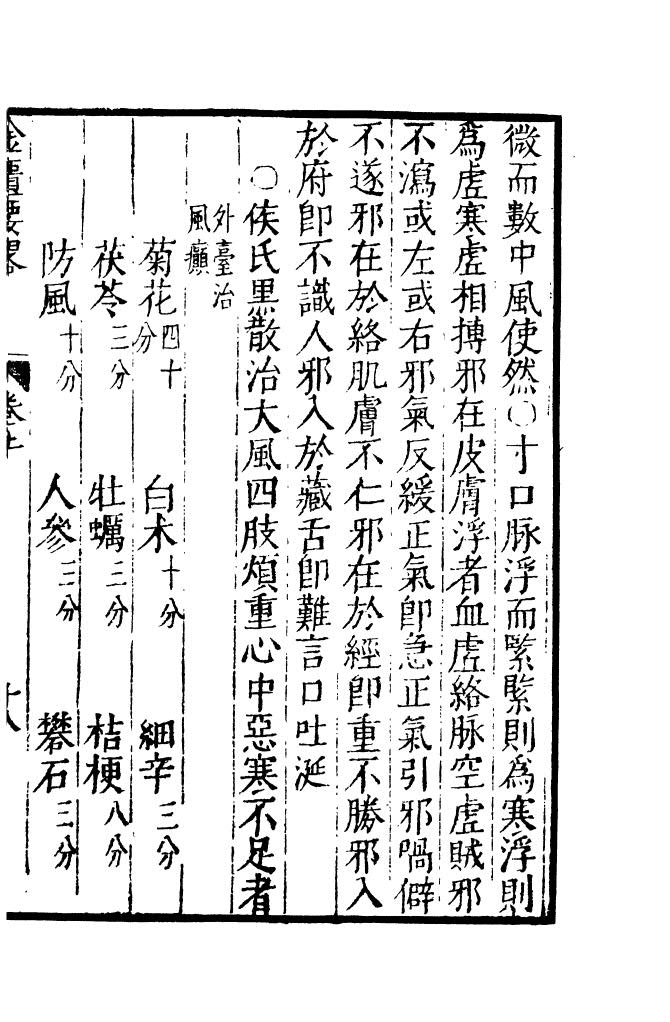 微而數中風使然○寸口脉浮而緊緊則為寒浮則
為虛寒虛相摶邪在皮膚浮者血虛絡脉空虛賊邪
不瀉或左或右邪氣反緩正氣即急正氣引邪喎僻
不遂邪在於絡肌膚不仁邪在於經即重不勝邪入
於府即不識人邪入於藏舌即難言口吐涎
○侯氏黑散治大風四肢煩重心中惡寒不足者
外臺治風癲
菊花四十分 白朮十分 細辛三分
茯苓三分 牡蠣三分 桔梗八分
防風十分 人參三分 礬石三分
金匱要畧 卷上 十八